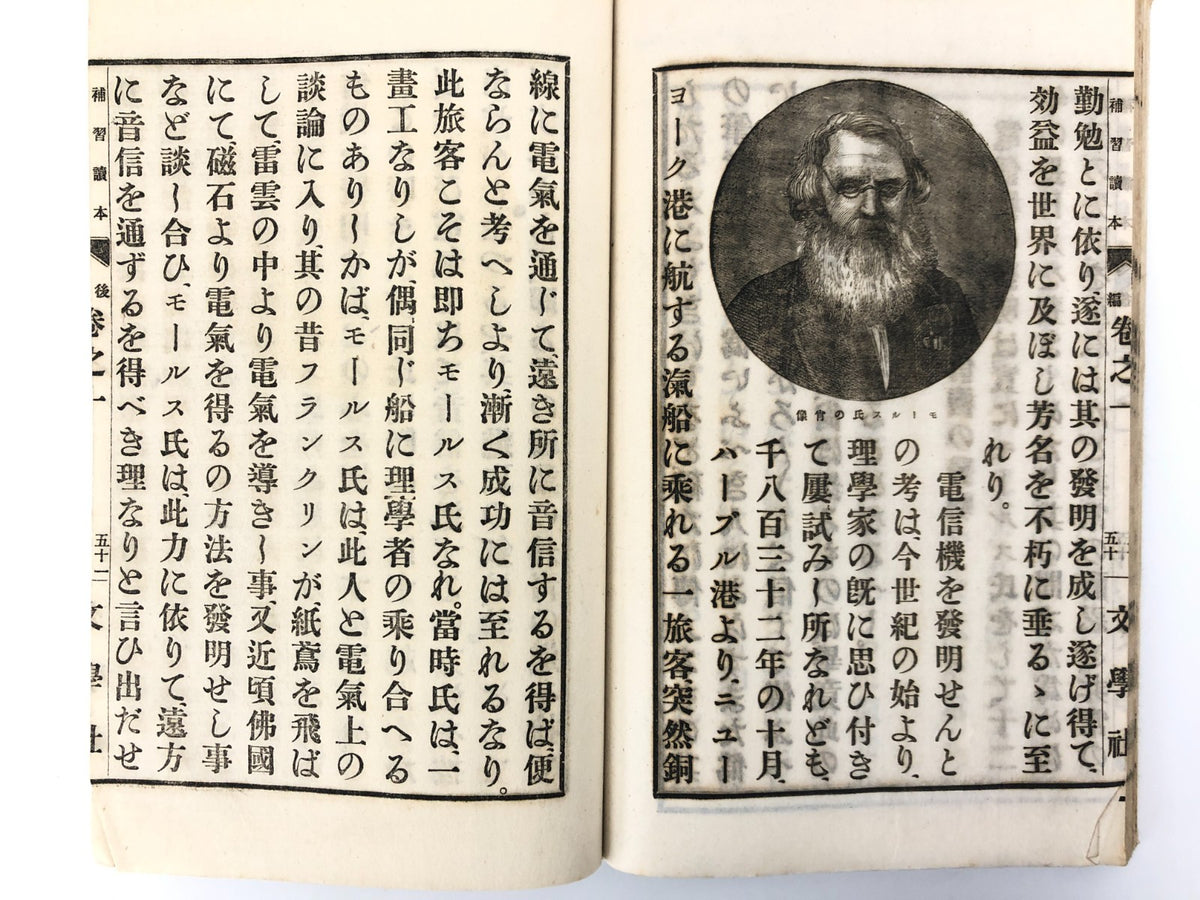 補習讀本
後編
卷之一
五十
文學社
勤勉とに依り、遂には其の發明を成し遂げ得て、
効益を世界に及ぼし芳名を不朽に垂るゝに至
れり。
電信機を發明せんと
の考は、今世紀の始より、
理學家の既に思ひ付き
て屢〻試みし所なれども、
千八百三十二年の十月、
ハーブル港より、ニユー
モールス氏の肖像
ヨーク港に航する滊船に乘れる一旅客、突然銅
線に電氣を通じて、遠き所に音信するを得ば、便
ならんと考へしより、漸く成功には至れるなり。
此旅客こそは即ちモールス氏なれ。當時氏は、一
畫工なりしが、偶〻同じ船に理學者の乘り合へる
ものありしかば、モールス氏は、此人と電氣上の
談論に入り、其の昔フランクリンが紙鳶を飛ば
して、雷雲の中より電氣を導きし事、又近頃佛國
にて、磁石より電氣を得るの方法を發明せし事
など談し合ひ、モールス氏は、此力に依りて、遠方
に音信を通ずるを得べき理なりと言ひ出だせ
補習讀本
後
卷之一
五十一
文學社